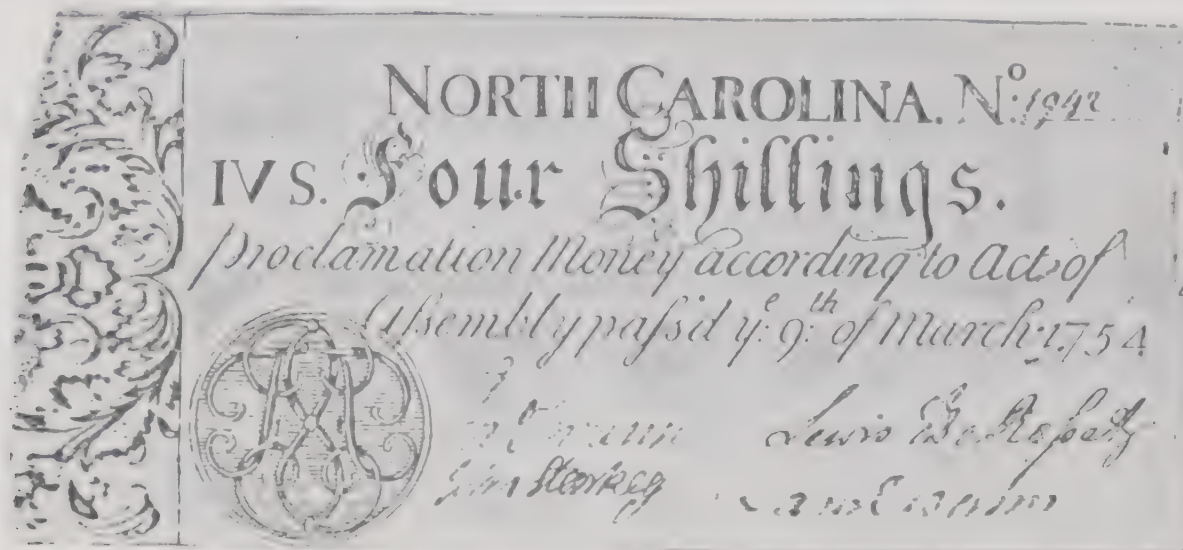 NORTH CAROLINA. Nº: 1942
IVS. Four Shillings.
Proclamation Money according to Act of
Assembly paſs'd yᵉ: 9:ᵗʰ of March: 1754
Lewis De Roſsett
John Starkey